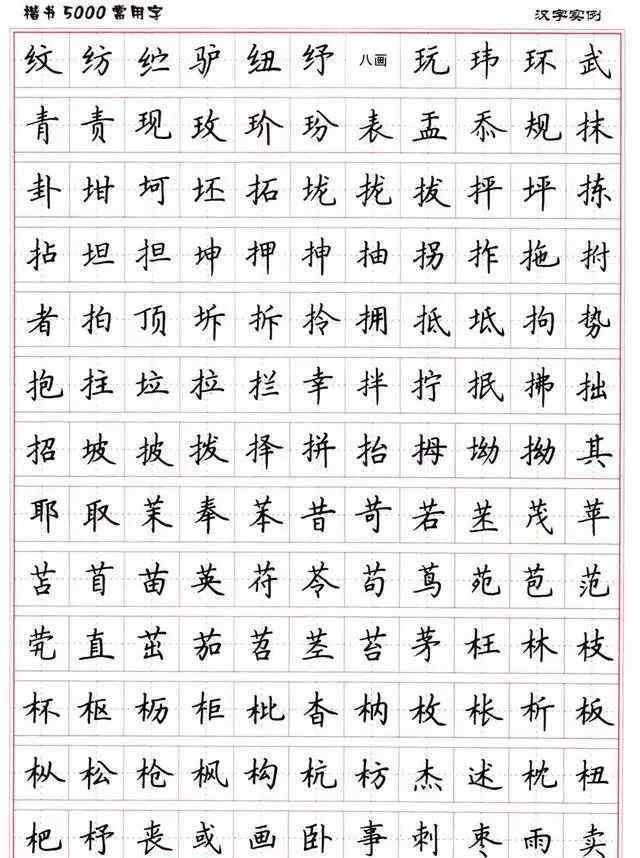 楷书5000常用字 汉字实例
纹 纺 纻 驴 纽 纾 八画 玩 玮 环 武
青 责 现 玫 玠 玢 表 盂 忝 规 抹
卦 坩 坷 坯 拓 垅 拢 拔 抨 坪 拣
拈 坦 担 坤 押 抻 抽 拐 拃 拖 拊
者 拍 顶 坼 拆 拎 拥 抵 坻 拘 势
抱 拄 垃 拉 拦 幸 拌 拧 抿 拂 拙
招 坡 披 拨 择 拚 抬 拇 坳 拗 其
耶 取 茉 奉 苯 昔 苛 若 茏 茂 苹
苫 苜 苗 英 苻 苓 苟 茑 苑 苞 范
茕 直 茁 茄 苕 茎 苔 茅 枉 林 枝
杯 枢 枥 柜 枇 杳 枘 枚 枨 析 板
枞 松 枪 枫 构 杭 枋 杰 述 枕 杻
杷 杼 丧 或 画 卧 事 刺 枣 雨 卖